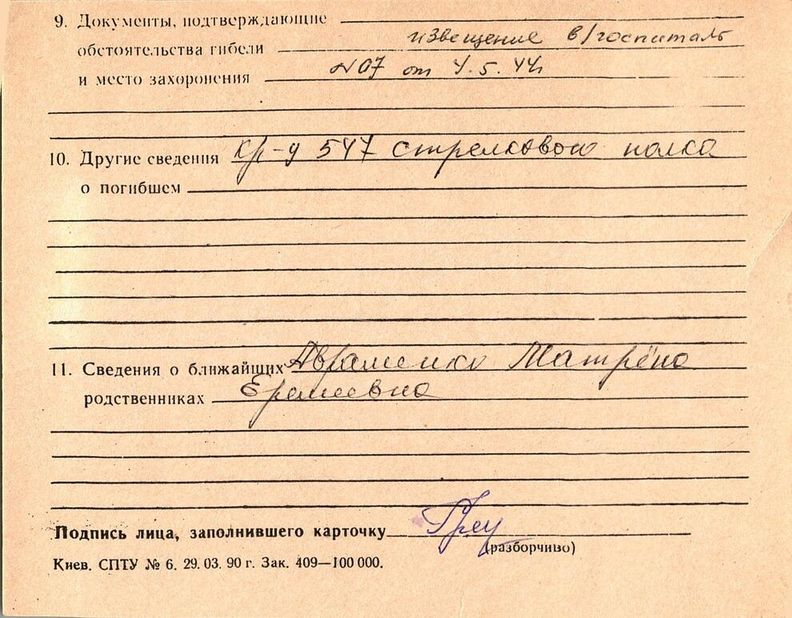 9. Документы, подтверждающие
обстоятельства гибели извещение в/госпиталь
и место захоронения №07 от 4.5.44г
10. Другие сведения кр-ц 547 стрелкового полка
о погибшем
11. Сведения о ближайших Авраменко Матрёна
родственниках Еремеевна
Подпись лица, заполнившего карточку
(разборчиво)
Киев. СПТУ № 6. 29. 03. 90 г. Зак. 409—100 000.